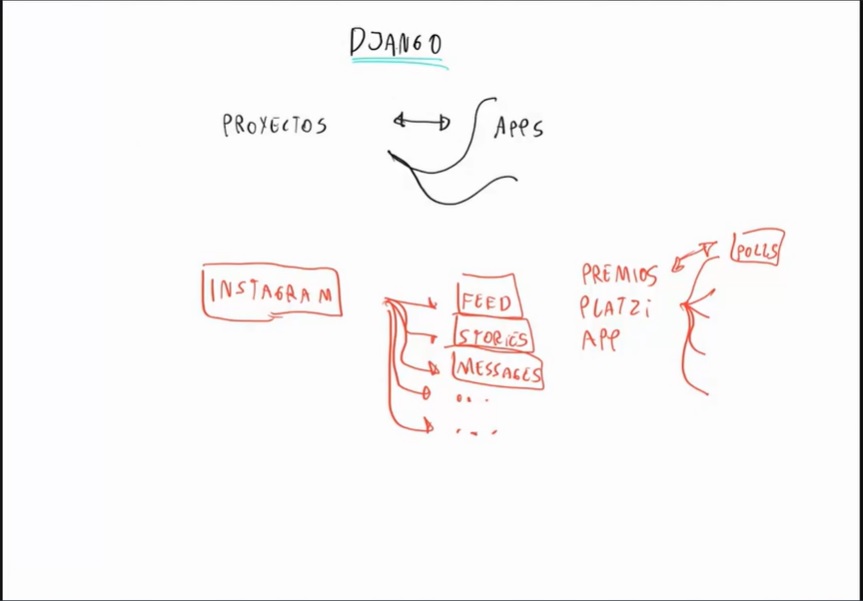 DJANGO
PROYECTOS
APPS
INSTAGRAM
FEED
STORIES
MESSAGES
...
...
PREMIOS
PLATZI
APP
POLLS